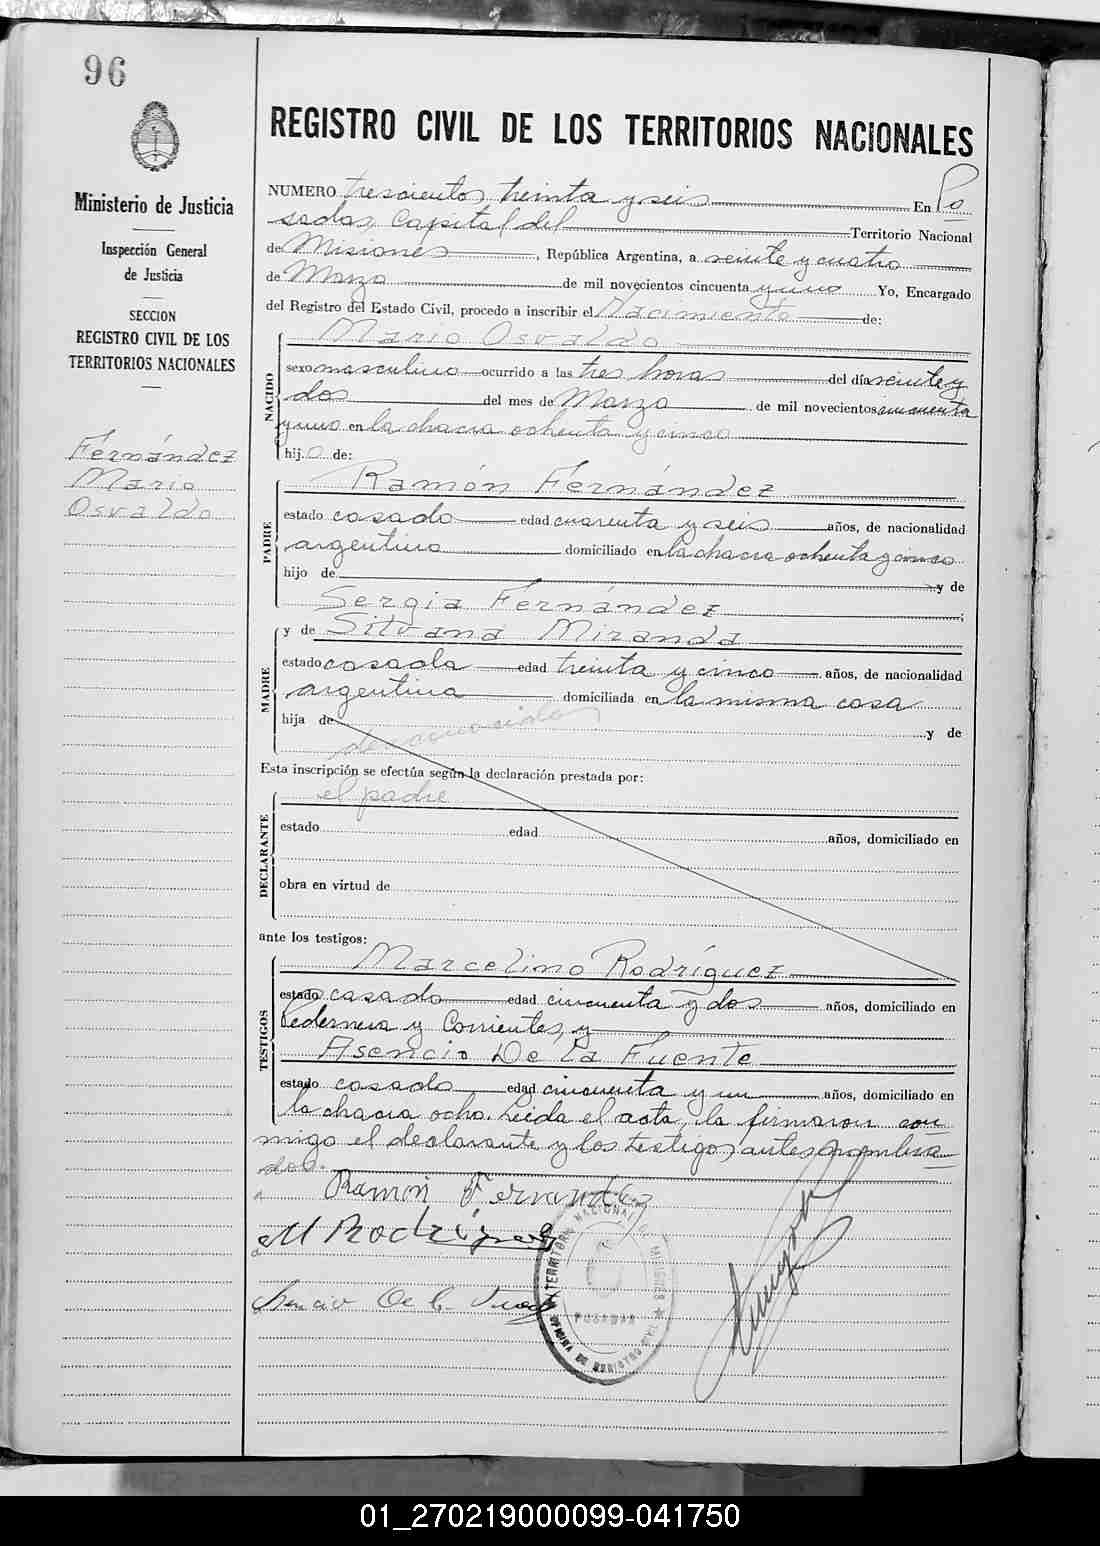 96
Ministerio de Justicia
Inspección General
de Justicia
SECCION
REGISTRO CIVIL DE LOS
TERRITORIOS NACIONALES
Fernández
Mario
Osvaldo
REGISTRO CIVIL DE LOS TERRITORIOS NACIONALES
NUMERO trescientos treinta y seis En Po
sadas, Capital del Territorio Nacional
de Misiones, República Argentina, a veinte y cuatro
de Marzo de mil novecientos cincuenta y uno Yo, Encargado
del Registro del Estado Civil, procedo a inscribir el Nacimiento de:
NACIDO
Mario Osvaldo
sexo masculino ocurrido a las tres horas del día veinte y
dos del mes de Marzo de mil novecientos cincuenta
y uno en la chacra ochenta y cinco
hij.o de:
PADRE
Ramón Fernández
estado casado edad cuarenta y seis años, de nacionalidad
argentino domiciliado en la chacra ochenta y cinco
hijo de y de
Sergia Fernández
MADRE
y de Silvana Miranda
estado casada edad treinta y cinco años, de nacionalidad
argentina domiciliada en la misma casa
hija de y de
Esta inscripción se efectúa según la declaración prestada por:
DECLARANTE
el padre
estado edad años, domiciliado en
obra en virtud de
ante los testigos:
TESTIGOS
Marcelino Rodríguez
estado casado edad cincuenta y dos años, domiciliado en
Pedernera y Corrientes, y
Asencio De la Fuente
estado casado edad cincuenta y un años, domiciliado en
la chacra ocho. Leida el acta, la firmaron con
migo el declarante y los testigos antes nombra
dos.
Ramón Fernández
M Rodríguez
Asencio De la Fuente
TERRITORIO NACIONAL DE MISIONES
POSADAS
OFICINA DE REGISTRO CIVIL
01_270219000099-041750